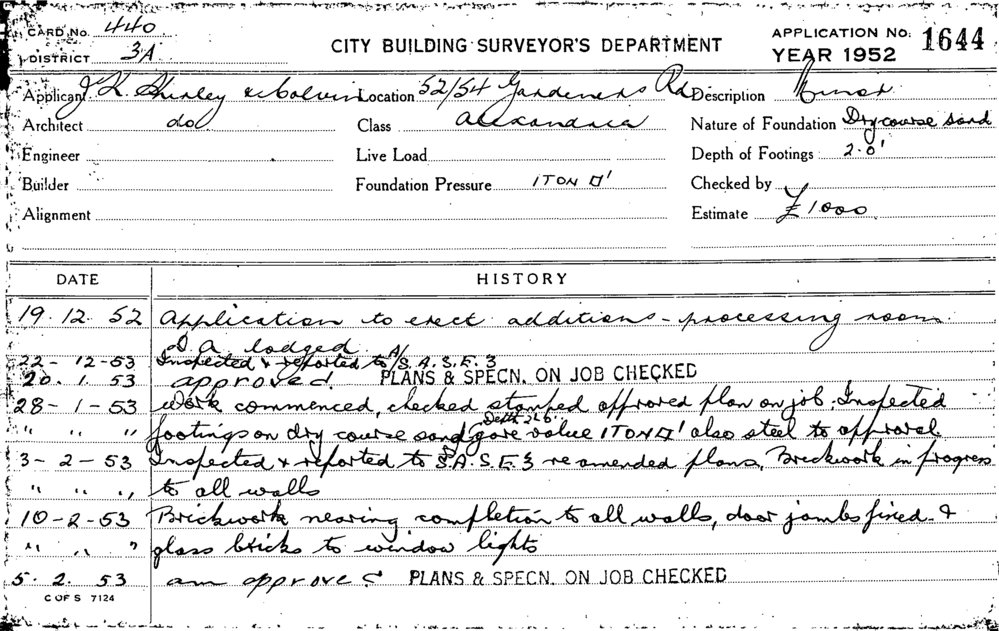 CARD No. 440
DISTRICT 3A
CITY BUILDING SURVEYOR'S DEPARTMENT
APPLICATION No. 1644
YEAR 1952
Applicant J. K. & Colvin Location 52/54 Gardeners Rd Description Minor
Architect do Class Alexandria Nature of Foundation Dry course sand
Engineer Live Load Depth of Footings 2.0'
Builder Foundation Pressure 1 TON □' Checked by
Alignment Estimate £1000
DATE HISTORY
19. 12. 52 Application to erect additions - processing room.
D.A. lodged.
22 - 12 - 53 Inspected & reported to A/S.A.S.E. 3
20. 1. 53 approved PLANS & SPECN. ON JOB CHECKED
28 - 1 - 53 work commenced, checked stamped approved plan on job. Inspected
" " " footings on dry course sand Depth 2'6" gave value 1 TON □' also steel to approval
3 - 2 - 53 Inspected & reported to S.A.S.E. 3 re amended plans, Brickwork in progress
" " " to all walls
10 - 2 - 53 Brickwork nearing completion to all walls, door jambs fixed &
" " " glass bricks to window lights
5. 2. 53 am approved PLANS & SPECN. ON JOB CHECKED
C OF S 7124